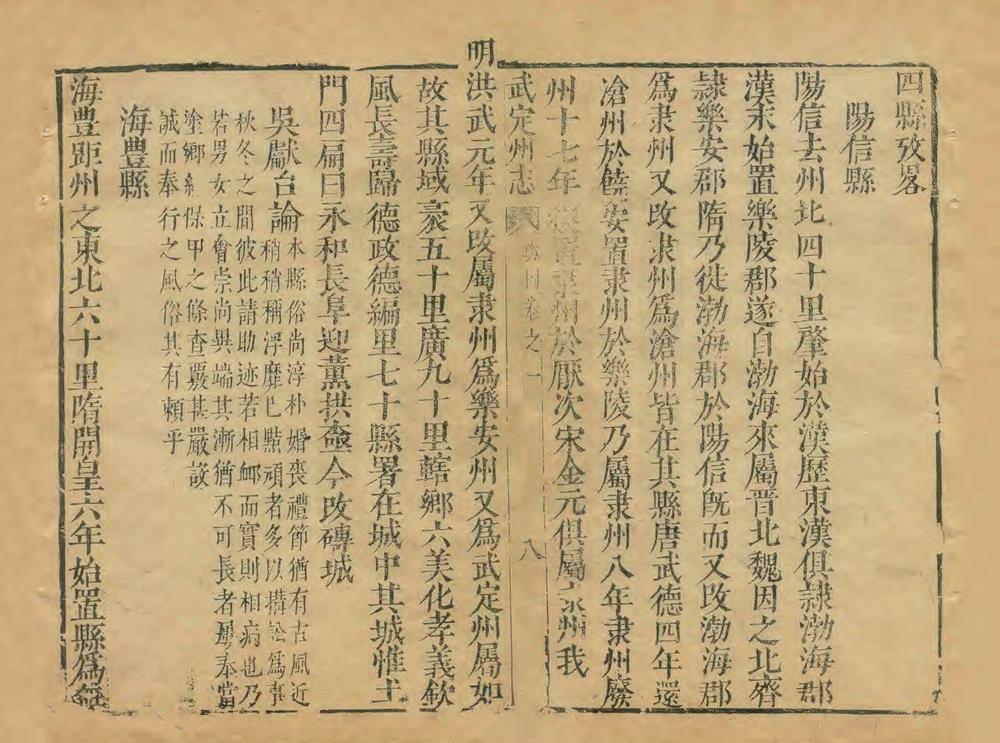 四縣攷畧
陽信縣
陽信去州北四十里肇始於漢歷東漢俱隷渤海郡
漢末始置樂陵郡遂自渤海來屬晋北魏因之北齊
隷樂安郡隋乃徙渤海郡於陽信旣而又改渤海郡
爲隶州又改隶州爲滄州皆在其縣唐武德四年還
滄州於饒安置隶州於樂陵乃屬隶州八年隶州廢
州十七年復置隶州於厭次宋金元俱屬隶州我
武定州志 卷之一 八
明洪武元年又改屬隶州爲樂安州又爲武定州屬如
故其縣域袤五十里廣九十里轄鄉六美化孝義欽
風長壽歸德政德編里七十縣署在城中其城惟土
門四扁曰永和長阜迎薰拱盝今改磚城
吳獻台論本縣俗尚淳朴婚喪禮節猶有古風近
稍稍稱浮靡巳黠頑者多以搆訟爲事
秋冬之間彼此請助迹若相衈而實則相病也乃
若男女立會崇尚異端其漸猶不可長者㝡本當
塗鄉約保甲之條查覈甚嚴設
誠而奉行之風俗其有頼乎
海豊縣
海豊距州之東北六十里隋開皇六年始置縣爲無